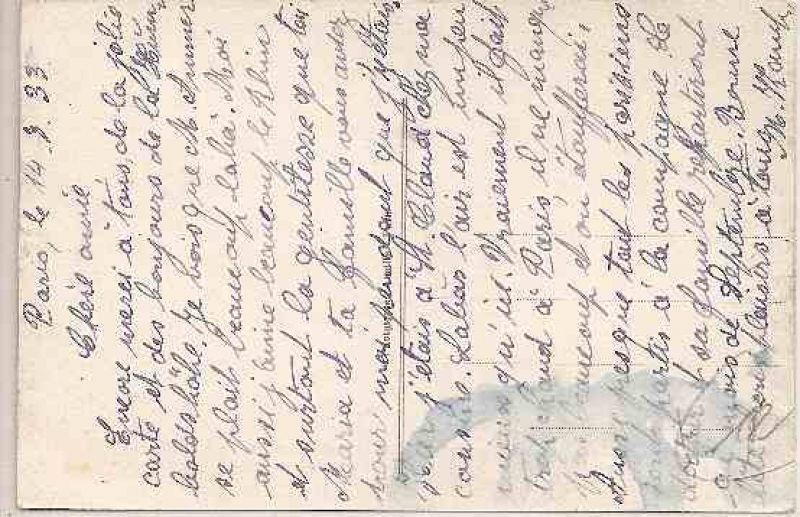 Paris, le 14.8.33
Chère amie
Encore merci à tous, de la jolie
carte et des bonjours de la
Je vois que M. Ammer
se plait beaucoup labà. Moi
aussi j'aime beaucoup le Rhin
et surtout la gentitesse que toi
Maria et ta famille vous aviez
pour moi pendant que j'y étais
j'étais à St. Cloud chez ma
cousine. Labas l'air est un peu
mieux qu'ici. Vraiment il fait
trop chaud à Paris, il ne manque
beaucoup et on étouffera;
Aussi presque tout les parisiens
sont partis à la campagne. Le
et sa famille repartiront
au mois de Septembre. Bonne
à tous